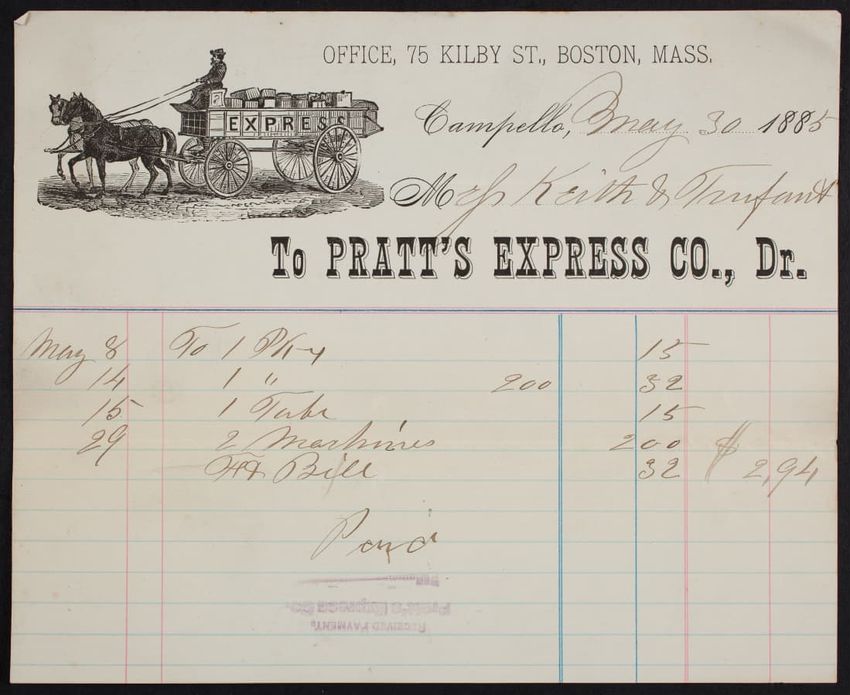 OFFICE, 75 KILBY ST., BOSTON, MASS.
EXPRESS
Campello, May 30 1885
Mess Keith & Trufant
To PRATT'S EXPRESS CO., Dr.
May 8 To 1 Pkg 15
14 1 " 200 32
15 1 Tube 15
29 2 Machines 200 $
Frt Bill 32 2,94
Paid
RECEIVED PAYMENT,
Pratt's Express Co.